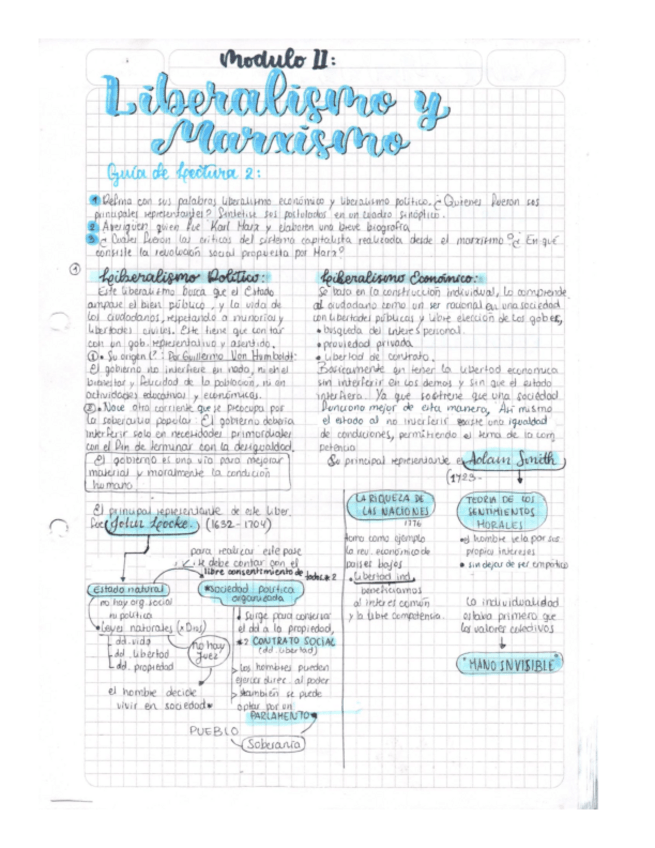 Modulo II:
Liberalismo y
Marxismo
Guía de Lectura 2:
1 Defina con sus palabras liberalismo económico y liberalismo político. ¿Quienes fueron sus
principales representantes? Sintetice sus postulados en un cuadro sinóptico.
2 Averiguen quien fue Karl Marx y elaboren una breve biografía
3 ¿Cuales fueron las criticas del sistema capitalista realizada desde el marxismo? ¿En qué
consiste la revolución social propuesta por Marx?
①
Liberalismo Político:
Este liberalismo busca que el Estado
ampare el bien público, y la vida de
los ciudadanos, respetando a minorías y
libertades civiles. Este tiene que contar
con un gob. representativo y asentido.
①• Su origen 1º: Por Guillermo Von Humboldt:
El gobierno no interfiere en nada, ni en el
bienestar y felicidad de la población, ni en
actividades educativas y económicas.
②• Nace otra corriente que se preocupa por
la soberanía popular. El gobierno debería
interferir solo en necesidades primordiales
con el fin de terminar con la desigualdad.
El gobierno es una vía para mejorar
material y moralmente la condición
humana
El principal representante de este liber.
fue John Locke. (1632-1704)
para realizar este pase
se debe contar con el
libre consentimiento de todos *2
Estado natural
no hay org. social
ni política
• Leyes naturales (x Dios)
dd. vida
dd. libertad
dd. propiedad
no hay
juez
el hombre decide
vivir en sociedad
*sociedad política
organizada
Surge para conservar
el dd a la propiedad,
*2 CONTRATO SOCIAL
(dd. libertad)
> los hombres pueden
ejercer direc. al poder
> también se puede
optar por un
PARLAMENTO
PUEBLO
Soberanía
Liberalismo Económico:
Se basa en la construcción individual, lo comprende
al ciudadano como un ser racional en una sociedad
con libertades públicas y libre elección de los gobes,
• busqueda del interés personal.
• propiedad privada
• libertad de contrato.
Básicamente en tener la libertad economica
sin interferir en los demas y sin que el estado
interfiera. Ya que sostiene que una sociedad
funciona mejor de esta manera, Asi mismo
el estado al no interferir existe una igualdad
de condiciones, permitiendo el tema de la com
petencia
Su principal representante es Adam Smith
(1723-
LA RIQUEZA DE
LAS NACIONES
1776
tomo como ejemplo
la rev. económico de
paises bajos
• Libertad ind.
beneficiamos
al interes común
y la libre competencia.
TEORIA DE LOS
SENTIMIENTOS
MORALES
• el hombre vela por sus
propios intereses
• sin dejar de ser empatico
La individualidad
estaba primero que
los valores colectivos
"MANO INVISIBLE"